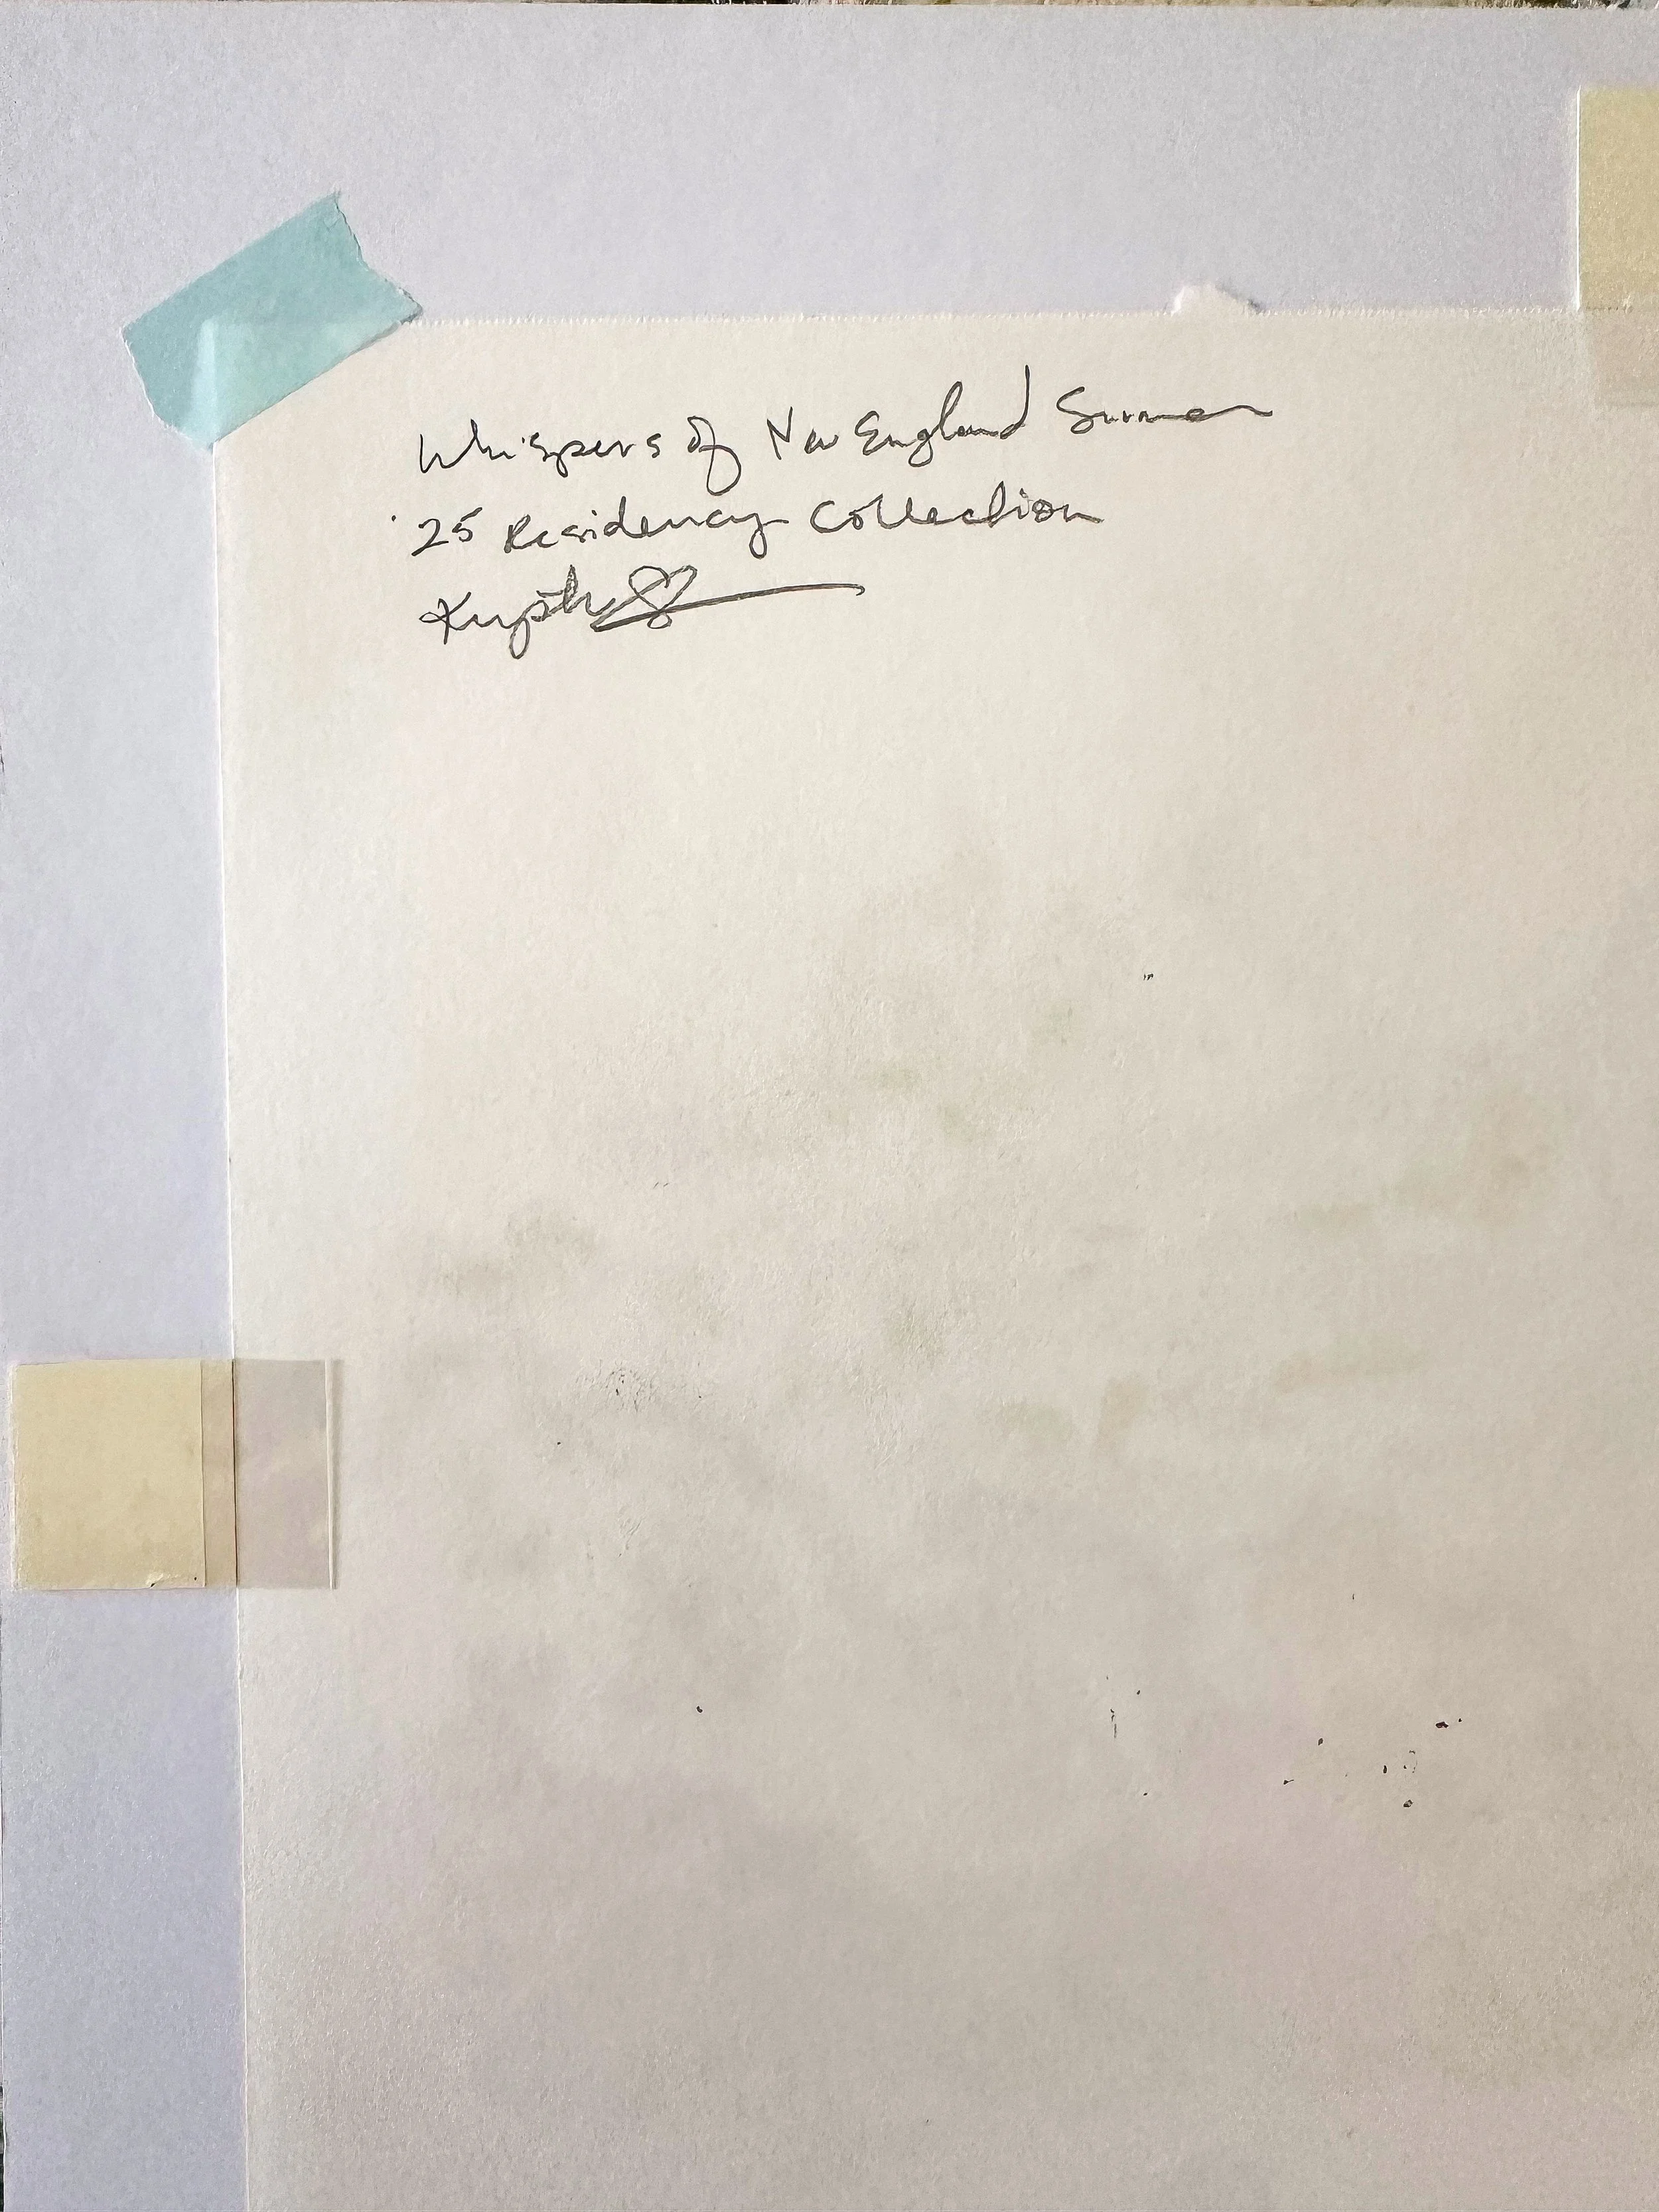 Whispers of New England Summer
'25 Residency Collection